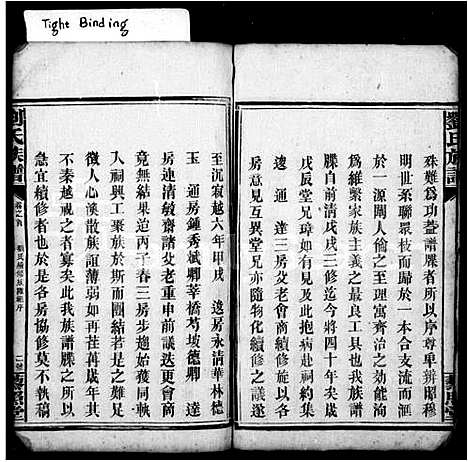 Tight Binding
劉氏族譜
殊難爲功蓋譜牒者所以序尊卑辨昭穆
明世系聯衆枝而歸於一本合支流而滙
於一源闡人倫之至理富齊治之効能洵
爲維繫家族主義之最良工具也我族譜
牒自前清戊戌三修迄今將四十年矣歲
戊辰堂兄璋如有見及此抱病赴祠約集
逵 房三房父老會商續修旋以各
房意見互異堂兄亦隨物化續修之議遂
至沉寂越六年甲戌 逸房永清華林德
玉 通房鍾秀斌卿莘橋芍坡德卿 達
房連清敏齋諸父老重申前議迭更會商
竟無結果迨丙子春三房步趨始獲同軌
入祠興工聚族於斯而團結若是之難足
徵人心渙散族誼薄弱如再荏苒歲年其
不秦越視之者寡矣此我族譜牒之所以
急宜續修者也於是各房協修莫不執稿
劉氏族譜
卷之首
藜照堂